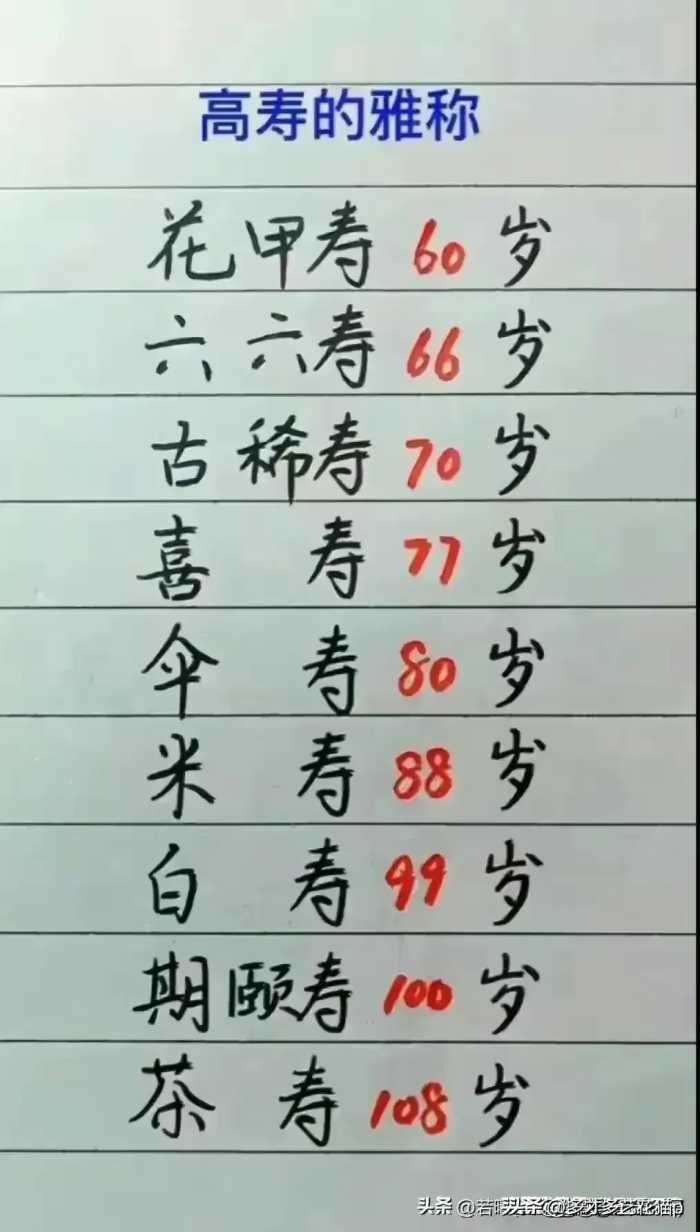 高寿的雅称
花甲寿 60 岁
六六寿 66 岁
古稀寿 70 岁
喜寿 77 岁
伞寿 80 岁
米寿 88 岁
白寿 99 岁
期颐寿 100 岁
茶寿 108 岁
头条 @若